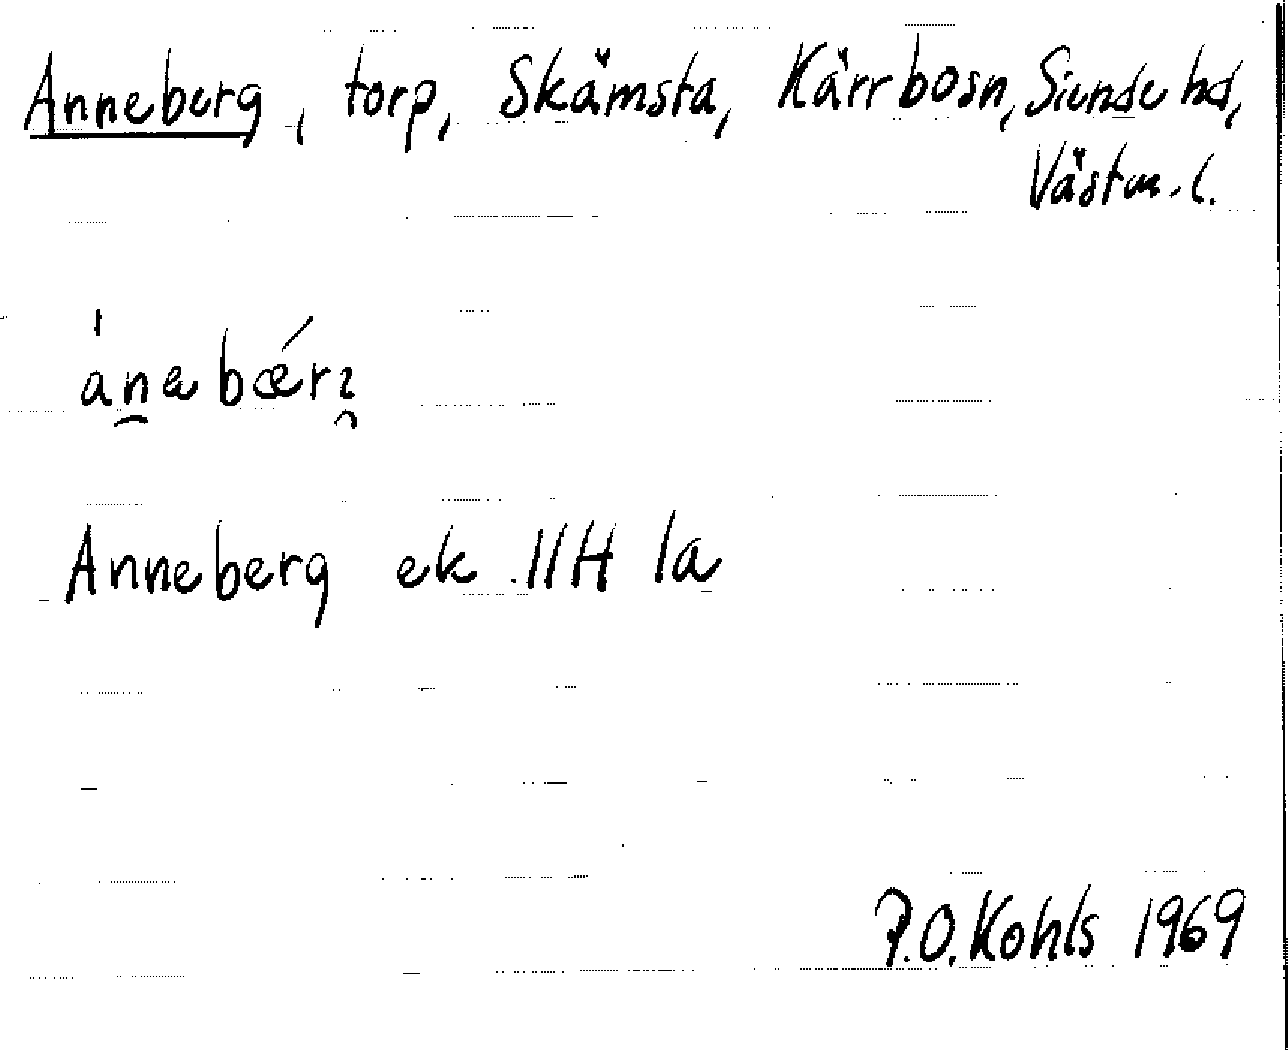 Anneberg, torp, Skämsta, Kärrbosn, Siende hd,
Västm. l.
ánabǽrɪ
Anneberg ek 11H 1a
P.O. Kohls 1969